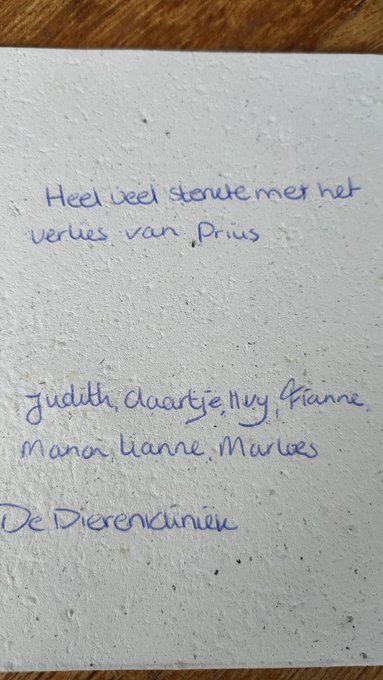 Heel veel sterkte met het
verlies van Prius
Judith, Claartje, Ilvy, Fianne,
Manon Lianne, Marloes
De Dierenkliniek